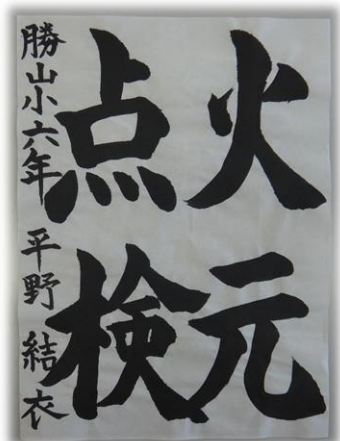 火元
点検
勝山小六年 平野結衣